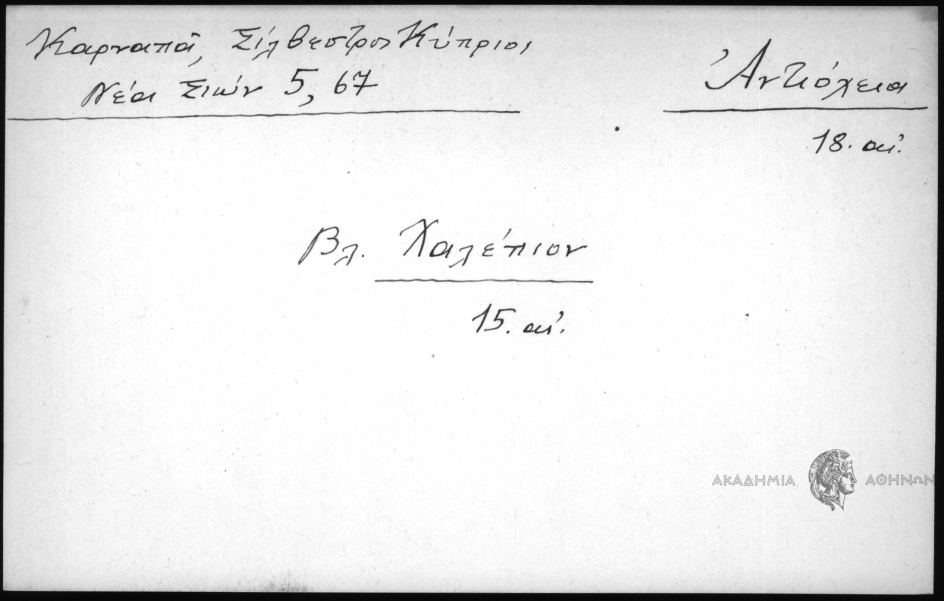 Καρναπᾶ, Σίλβεστρος Κύπριος
Νέα Σιών 5, 67
Ἀντιόχεια
18. αἰ.
Βλ. Χαλέπιον
15. αἰ.
ΑΚΑΔΗΜΙΑ ΑΘΗΝΩΝ